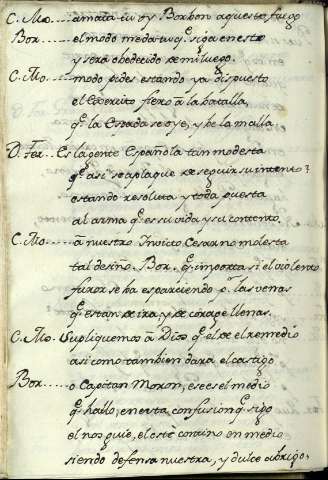 C. Mo. ..... amata tu oy Borbon aquesto, fuego
Bor ...... el modo me da tu q̃. siga en esto
y sera obedecido de mi luego.
C. Mo ..... modo pides estando ya dispuesto
el Exercito fiero à la batalla,
q̃. la Espada se oye, y be la malla.
D. Fer.. Es la gente Española tan modesta
q̃. asi se aplaque de seguir su intento?
estando resoluta y toda puesta
al arma q̃. es su vida y su contento.
C. Mo ..... à nuestro Invicto Cesar no molesta
tal desiño. Bor. q̃. importa si el violento
furor se ha esparciendo pr. las venas
q̃. estan de ira y de corage llenas.
C. Mo. Supliquemos à Dios q̃. el de el remedio
asi como tambien dara el castigo
Bor ....... o Capitan Moron, ese es el medio
q̃. hallo, en esta confusion q̃. sigo
el nos guie, el estè contino en medio
siendo defensa nuestra, y dulce abrigo,